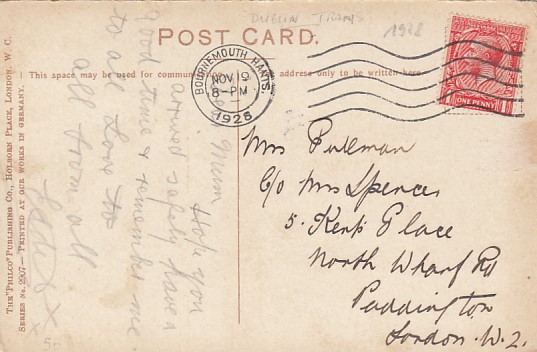 DUBLIN TRAMS
1928
POST CARD.
This space may be used for communication
address only to be written here
THE "PHILCO" PUBLISHING CO., HOLBORN PLACE, LONDON, W. C.
SERIES No. 2007 — PRINTED AT OUR WORKS IN GERMANY.
BOURNEMOUTH HANTS.
NOV 19
8 - PM
1928
ONE PENNY
Mum Hope you
arrived safely have a
good time & remember me
to all Love to
all from all
X X
Mrs Pullman
C/o Mrs Spencer
5. Kent's Place
North Wharf Rd
Paddington
London. W. 2.